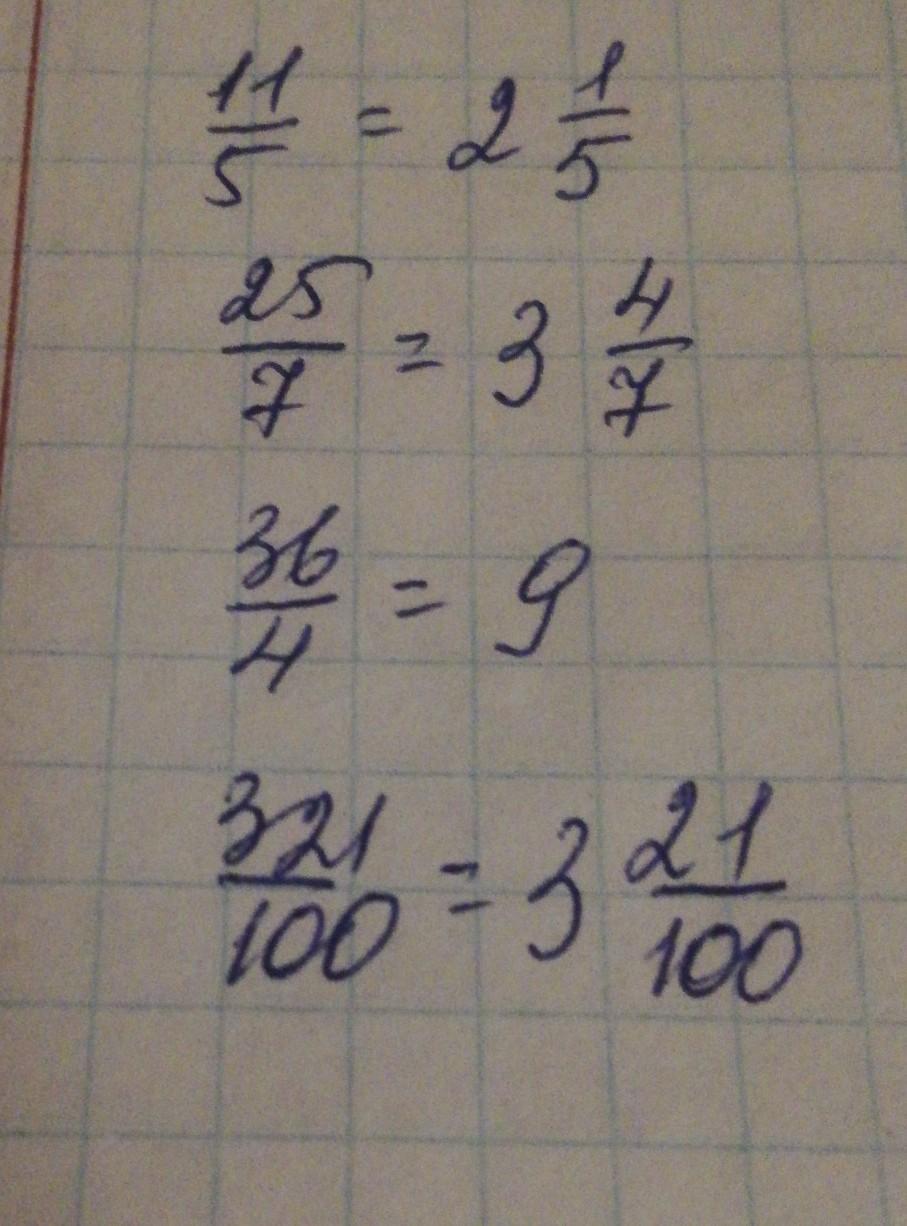 11/5 = 2 1/5
25/7 = 3 4/7
36/4 = 9
321/100 = 3 21/100